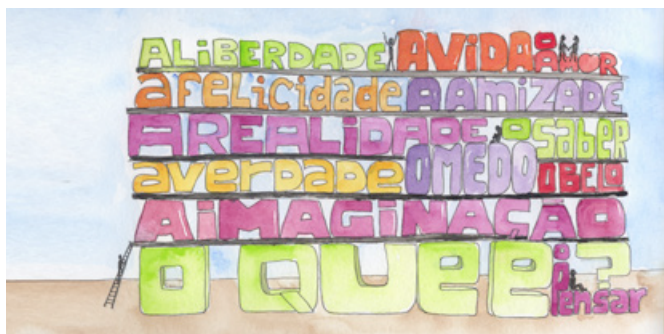 ALiBERDADE AViDA O AMOR
aFeLicidade AAmizADE
AREALiDADE O SABER
averDaDe OMEDO OBELO
AiMAGiNAÇÃO
O QUE E O pensar ?